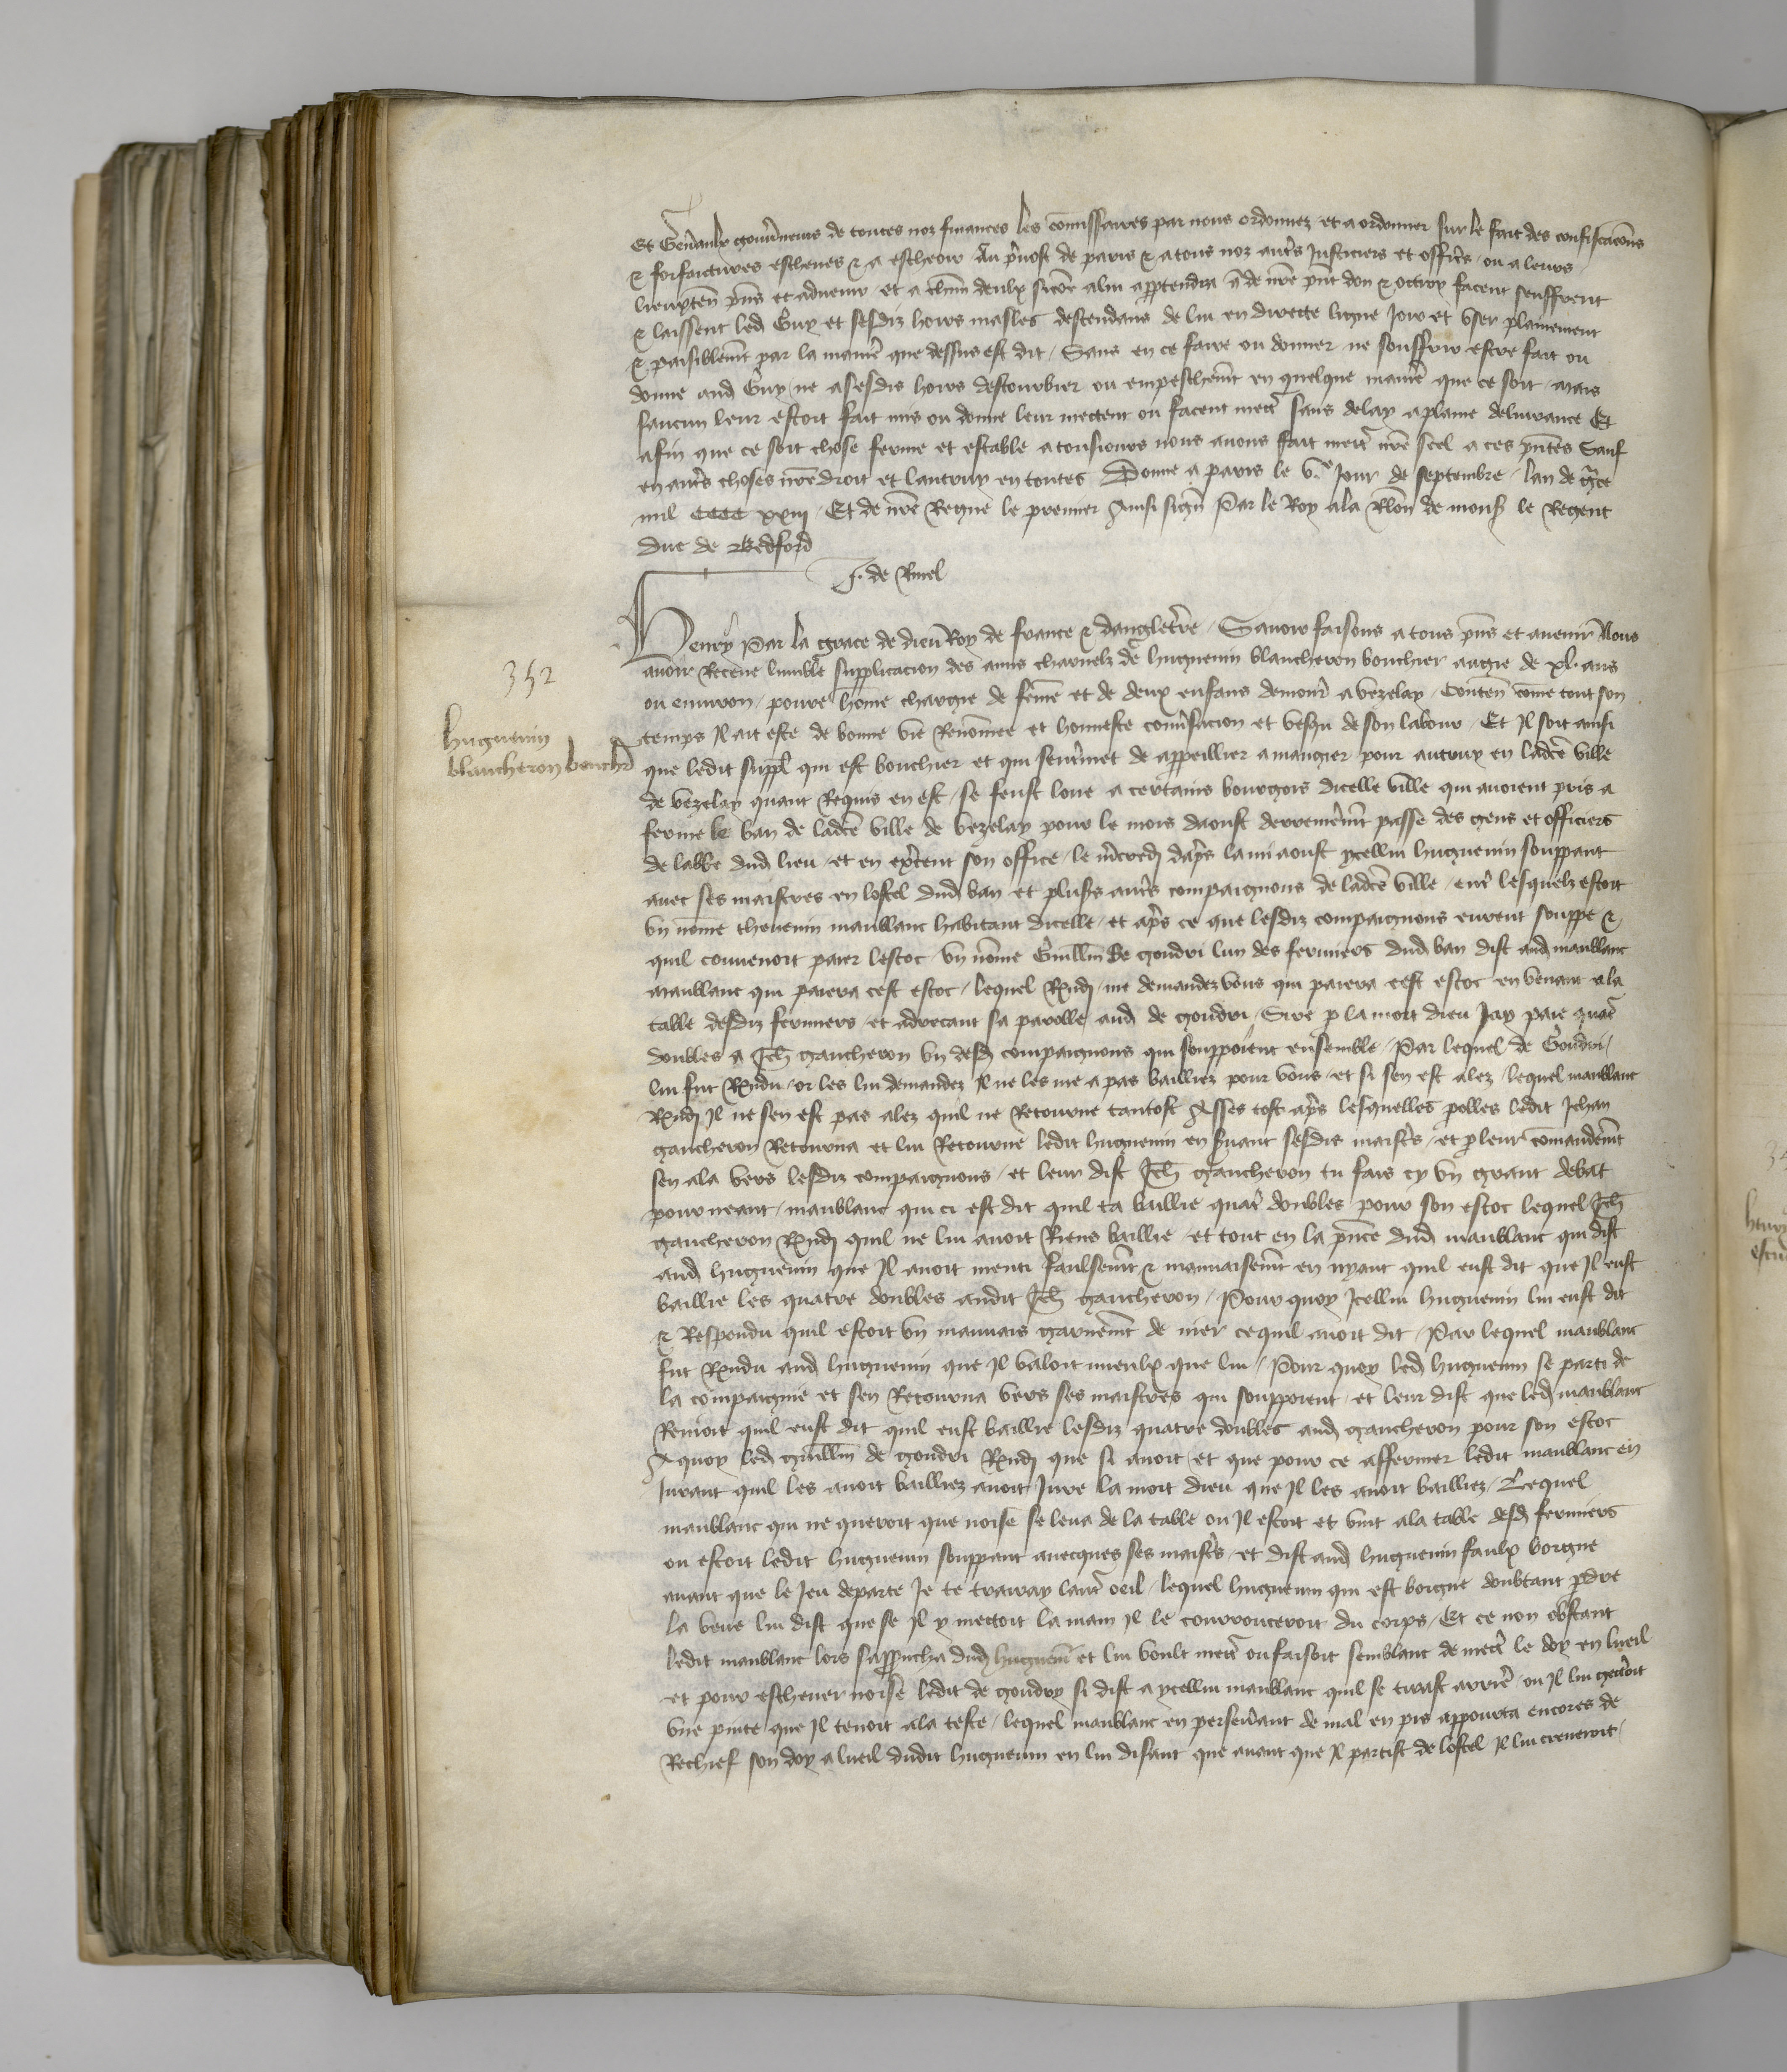 Et Gen̄aulx gouv̄neurs de toutes noz finances les com̄issaires par nous ordonnez et a ordonner sur le fait des confiscac̄ons
& forfaictures escheues & a escheoir Au p̄uost de paris & a tous noz aut̄s Justiciers et offic̄rs ou a leurs
lieuxten̄ p̄ns et aduenir et a ch̄un deulx sicōe a lui app̄tendra q̄ de n̄re p̄nt don & octroy facent seuffrent
& laissent led Guy et sesdiz hoirs masles descendans de lui en directe ligne Joir et vser plainement
& paisiblem̄t par la manie᷑ que dessus est dit / Sans en ce faire ou donner ne souffrir estre fait ou
donne aud Guy ne a sesdis hoirs destourbier ou empeschem̄t en quelque manie᷑ que ce soit mais
saucun leur estoit fait mis ou donne leur mectent ou facent mect̄ sans delay a plaine deliurance Et
afin que ce soit chose ferme et estable a tousiours nous auons fait mect̄ n̄re seel a ces p̄ntes Sauf
en aut̄s choses n̄re droit et lautruy en toutes Donne a paris le v.e Jour de septembre lan de ḡce
mil CCCC xxiij Et de n̄re Regne le premier Ainsi sign̄ Par le Roy a la Rl̄on de mons̄ le Regent
duc de Bedford
J. de Rinel
Henry Par la grace de dieu Roy de france & dangleterre / Sauoir faisons a tous p̄ns et auenir Nous
auoir Receue lumble supplicacion des amis charnelz de huguenin blancheron bouchier aagie de xl. ans
ou enuiron / poure hom̄e chargie de fem̄e et de deux enfans demour̄ a vezelay / Conten̄ com̄e tout son
temps Il ait este de bonne vie Renom̄ee et honneste conūsacion et vescu de son labour Et Il soit ainsi
352
huguenin
blancheron bouch̄r
que ledit suppl̄ qui est bouchier et qui sent̄met de appeillier a mangier pour autruy en ladc̄e ville
de vezelay quant Requis en est / se feust loue a certains bourgois dicelle ville qui auoient pris a
ferme le ban de ladc̄e ville de vezelay pour le mois daoust derrenierem̄t passe des gens et officiers
de labbe dud lieu et en exc̄ent son office / le m̄credj dap̄s la mi aoust ycellui huguenin souppant
auec ses maistres en lostel dud ban et plus̄s aut̄s compaignons de ladc̄e ville / ent̄ lesquelz estoit
vn nom̄e theuenin maublanc habitant dicelle / et ap̄s ce que lesdiz compaignons eurent souppe &
quil conuenoit paier lescot vn nom̄e Guillm̄ de goudri lun des fermiers dud ban dist aud maublanc
maublanc qui paiera cest escot / lequel Rn̄dj me demandez vous qui paiera cest escot en venant a la
table desdiz fermiers et adrecant sa parolle aud de goudri / Sire p la mort dieu Jay paie quat̄
doubles a Jeh̄ gaucheron vn desd compaignons qui souppoient ensemble / Par lequel de Goudri
lui fut Rn̄du / or les lui demandez Il ne les me a pas bailliez pour vous / et si sen est alez / lequel maublanc
Rn̄dj Il ne sen est pas alez quil ne Retourne tantost Asses tost ap̄s lesquelles p̄olles ledit Jehan
gaucheron Retourna et lui Retourne ledit huguenin en s̄uant sesdis maist̄s / et p leur com̄andem̄t
sen ala vers lesdiz compaignons / et leur dist Jeh̄ gaucheron tu fais cy vn grant debat
pour neant / maublanc qui ci est dit quil ta baillie quat̄ doubles pour son escot lequel Jeh̄
gaucheron Rn̄dj quil ne lui auoit Riens baillie et tout en la p̄nce dud maublanc qui dist
aud huguenin que Il auoit menti faulsem̄t & mauuaisem̄t en nyant quil eust dit que Il eust
baillie les quatre doubles audit Jeh̄ gaucheron / Pour quoy Icellui huguenin lui eust dit
& Respondu quil estoit vn mauuais garnem̄t de nier ce quil auoit dit / Par lequel maublanc
fut Rn̄du aud huguenin que Il valoit mieulx que lui / Pour quoy led huguenin se parti de
la compaignie et sen Retourna vers ses maistres qui souppoient et leur dist que led maublanc
Renioit quil eust dit quil eust baillie lesdiz quatre doubles aud gaucheron pour son escot
A quoy led guillm̄ de goudri Rn̄dj que si auoit et que pour ce affermer ledit maublanc en
Jurant quil les auoit bailliez auoit Jure la mort dieu que Il les auoit bailliez / Lequel
maublanc qui ne queroit que noise se leua de la table ou Il estoit et vint a la table desd fermiers
ou estoit ledit huguenin souppant auecques ses maist̄s / et dist aud huguenin faulx borgne
auant que le Jeu departe Je te trairay laut̄ oeil / lequel huguenin qui est borgne doubtant p̄dre
la veue lui dist que se Il y mectoit la main Il le courrouceroit du corps / Et ce non obstant
ledit maublanc lors sapproucha dud huguenin et lui voult mect̄ ou faisoit semblant de mect̄ le doy en lueil
et pour escheuer noise ledit de goudry si dist a ycellui maublanc quil se tirast arrie᷑ ou Il lui gect̄oit
vne pinte que Il tenoit a la teste / lequel maublanc en perseu̅ant de mal en pis appourta encores de
Rechief son doy a lueil dudit huguenin en lui disant que auant que Il partist de lostel Il lui creueroit